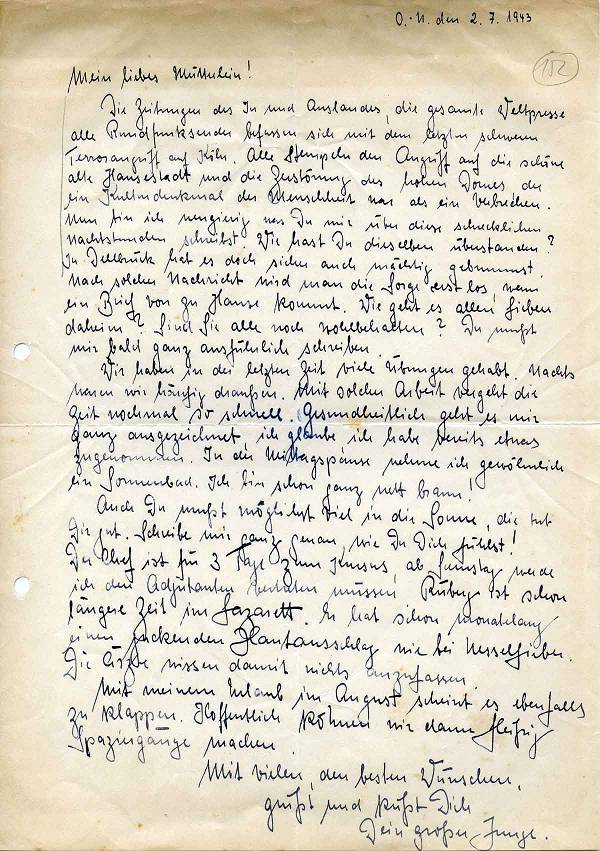 O.-U. den 2.7.1943
152
Mein liebes Mütterlein!
Die Zeitungen des In und Auslandes, die gesamte Weltpresse
alle Rundfunksender befassen sich mit dem letzten schweren
Terrorangriff auf Köln. Alle stempeln den Angriff auf die schöne
alte Hansestadt und die Zerstörung des hohen Domes, der
ein Kulturdenkmal der Menschheit war als ein Verbrechen.
Nun bin ich neugierig was Du mir über diese schrecklichen
Nachtstunden schreibst. Wie hast Du dieselben überstanden?
In Dellbrück hat es doch sicher auch mächtig gebrummt.
Nach solcher Nachricht wird man die Sorge erst los, wenn
ein Brief von zu Hause kommt. Wie geht es allen Lieben
daheim? Sind Sie alle noch wohlbehalten? Du mußt
mir bald ganz ausführlich schreiben.
Wir haben in der letzten Zeit viele Übungen gehabt. Nachts
waren wir häufig draußen. Mit solcher Arbeit vergeht die
Zeit nochmal so schnell. Gesundheitlich geht es mir
ganz ausgezeichnet, ich glaube ich habe bereits etwas
zugenommen. In der Mittagspause nehme ich gewöhnlich
ein Sonnenbad. Ich bin schon ganz nett braun!
Auch Du mußt möglichst viel in die Sonne, die tut
Dir gut. Schreibe mir ganz genau, wie Du Dich fühlst!
Der Chef ist für 3 Tage zum Kursus, ab Samstag werde
ich den Adjutanten vertreten müssen. Ruberg ist schon
längere Zeit im Lazarett. Er hat schon monatelang
einen juckenden Hautausschlag wie bei Nesselfieber.
Die Ärzte wissen damit nichts anzufassen.
Mit meinem Urlaub im August scheint es ebenfalls
zu klappen. Hoffentlich können wir dann fleißig
Spaziergänge machen.
Mit vielen, den besten Wünschen,
grüßt und küßt Dich
Dein großer Junge.